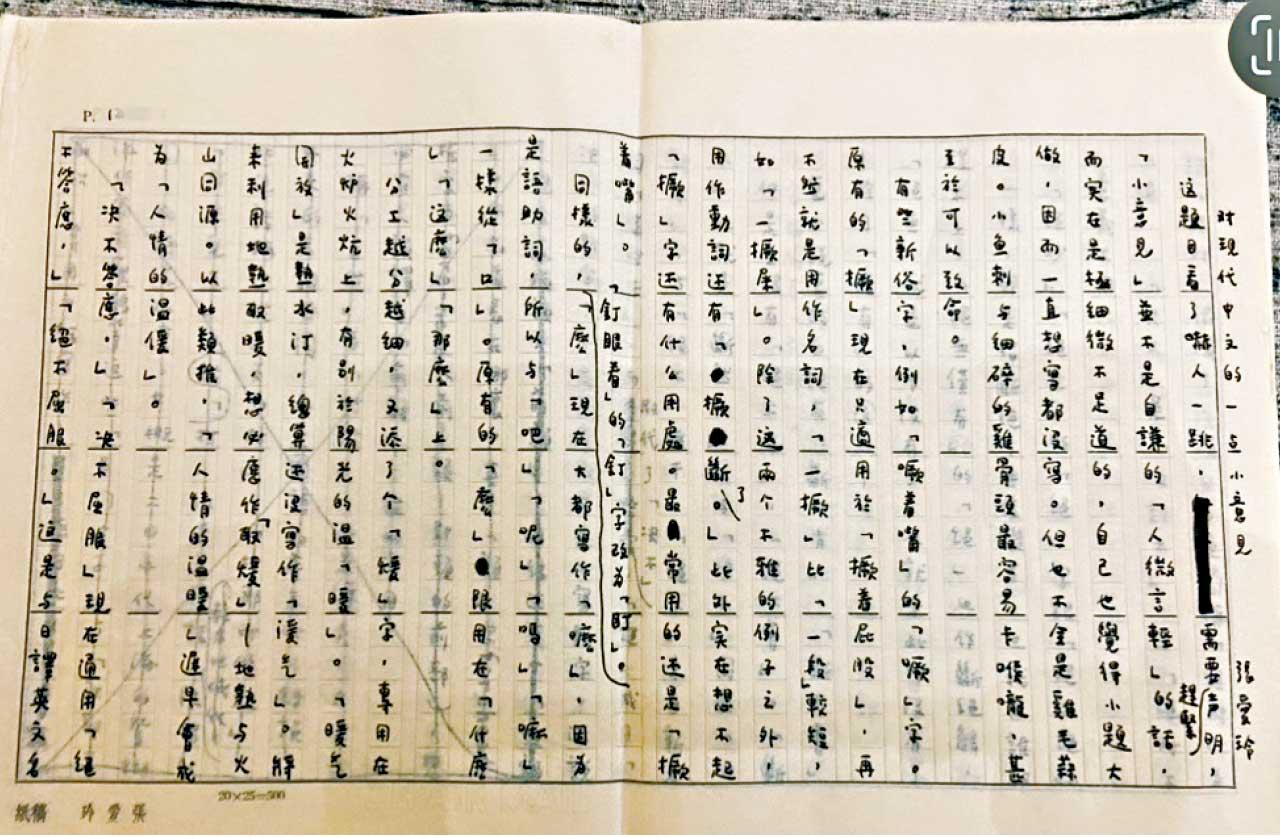 對現代中文的一点小意見 張愛玲
這題目看了嚇人一跳，需要趕緊声明，
「小意見」並不是自謙的「人微言輕」的話，
而实在是極細微不足道的，自己也覺得小題大
做，因而一直想寫都沒寫。但也不全是雞毛蒜
皮。小魚刺与細碎的雞骨頭最容易卡喉嚨，甚
至於可以致命。
有些新俗字，例如「噘着嘴」的「噘」字。
原有的「撅」現在只適用於「撅着屁股」，再
不然就是用作名詞，「一撅」比「一段」較短，
如「一撅屎」。除了这兩个不雅的例子之外，
用作動詞还有「撅斷了。」此外实在想不起
「撅」字还有什么用處。最常用的还是「撅
着嘴」。
「釘眼看」的「釘」字改为「盯」。
同樣的，「麼」現在大都寫作「嚒」，因为
是語助詞，所以与「吧」「呢」「嗎」「嘛」
一樣從「口」。原有的「麼」限用在「什麼
」「这麼」「那麼」上。
分工越分越細，又添了个「煖」字，專用在
火炉火炕上，有别於陽光的温「暖」。「暖气
開放」是熱水汀，總算还沒寫作「煖气」。將
來利用地熱取暖，想必應作「取煖」—地熱与火
山同源。以此類推，「人情的温暖」遲早會成
为「人情的温偄」。
「决不答應。」「决不屈服」現在通用「絕
不答應，」「絕不屈服。」這是与日譯英文名
P. 1
20×25=500
張愛玲 稿紙